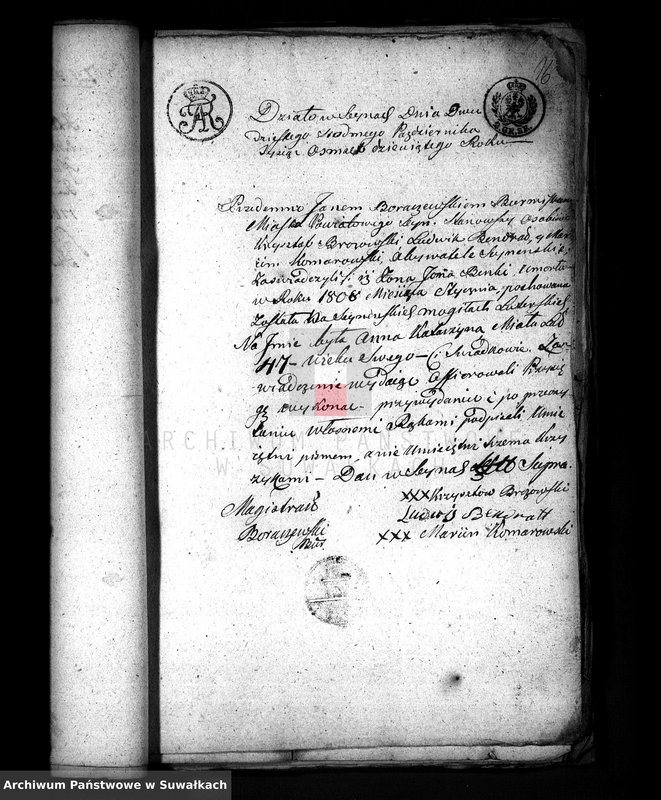 16
FAR
Działo w Seynach Dnia Dwu
dziestego Siodmego Pazdziernika
Tysiąc Osmset dziewiątego Roku
Przedemną Janem Boraczewskiem Burmistrzem
Miasta Powiatowego Seyn. Stanowszy Osobiscie
Krzysztof Brozowski Ludwik Bendrad, y Mar
cin Komarowski, Obywatele Seynenscy
Zaswiadczyli: iż Żona Jona Binki umarła
w Roku 1808 Miesiąca Stycznia pochowana
Została na Seynenskiey mogiłach Luterskiey
Na Jmie była Anna Katarzyna Miała Lad
47 – wieku Swego – Ci Swiadkowie. Zas
wiadczenie wydaiąc Offiarowali Przysię
gę wykonac – przy wydaniu i po przeczy
taniu własnemi Rękami podpisali, Umie
iętni pismem, a nie Umieiętni trzema Krzy
zykami – Dań w Seynach Supra.
Magistrat
Boraczewski
Bur.
XXX Krzysztow Brozowski
Ludwig Bendratt
XXX Marcin Komarowski
ARCHIWUM PAŃSTWOWE
W SUWAŁKACH
Archiwum Państwowe w Suwałkach